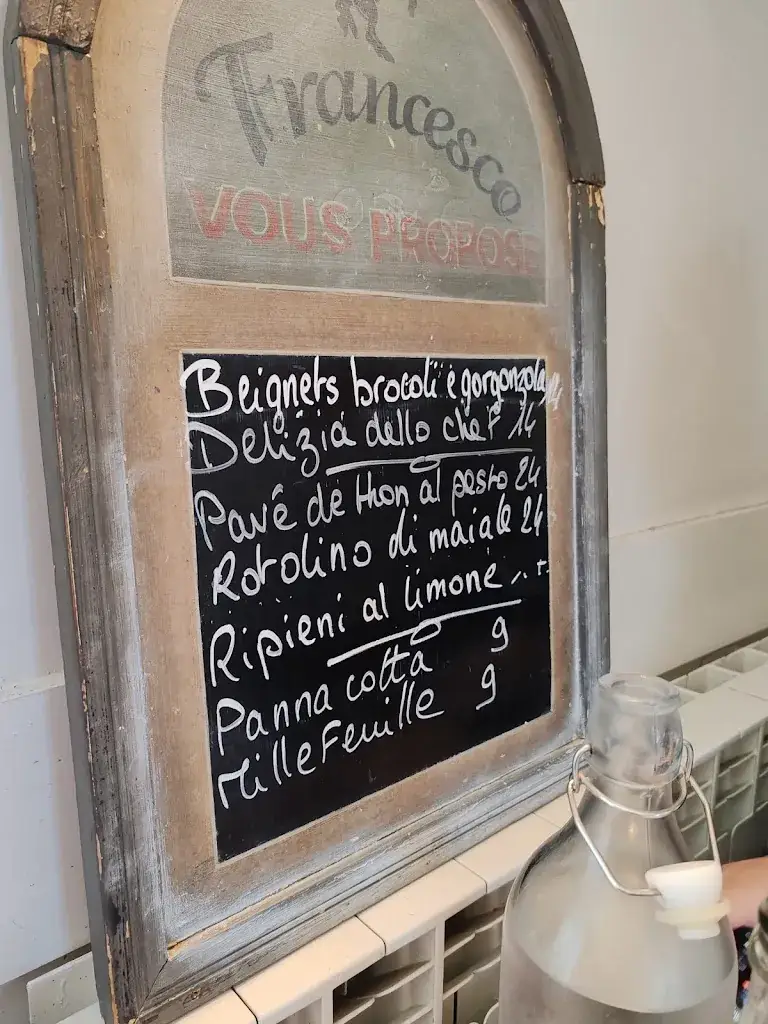 Francesco
VOUS PROPOSE
Beignets brocoli e gorgonzola 14
Delizia dello chef 14
Pavê de thon al pesto 24
Rotolino di maiale 24
Ripieni al limone
Panna cotta 9
Millefeuille 9